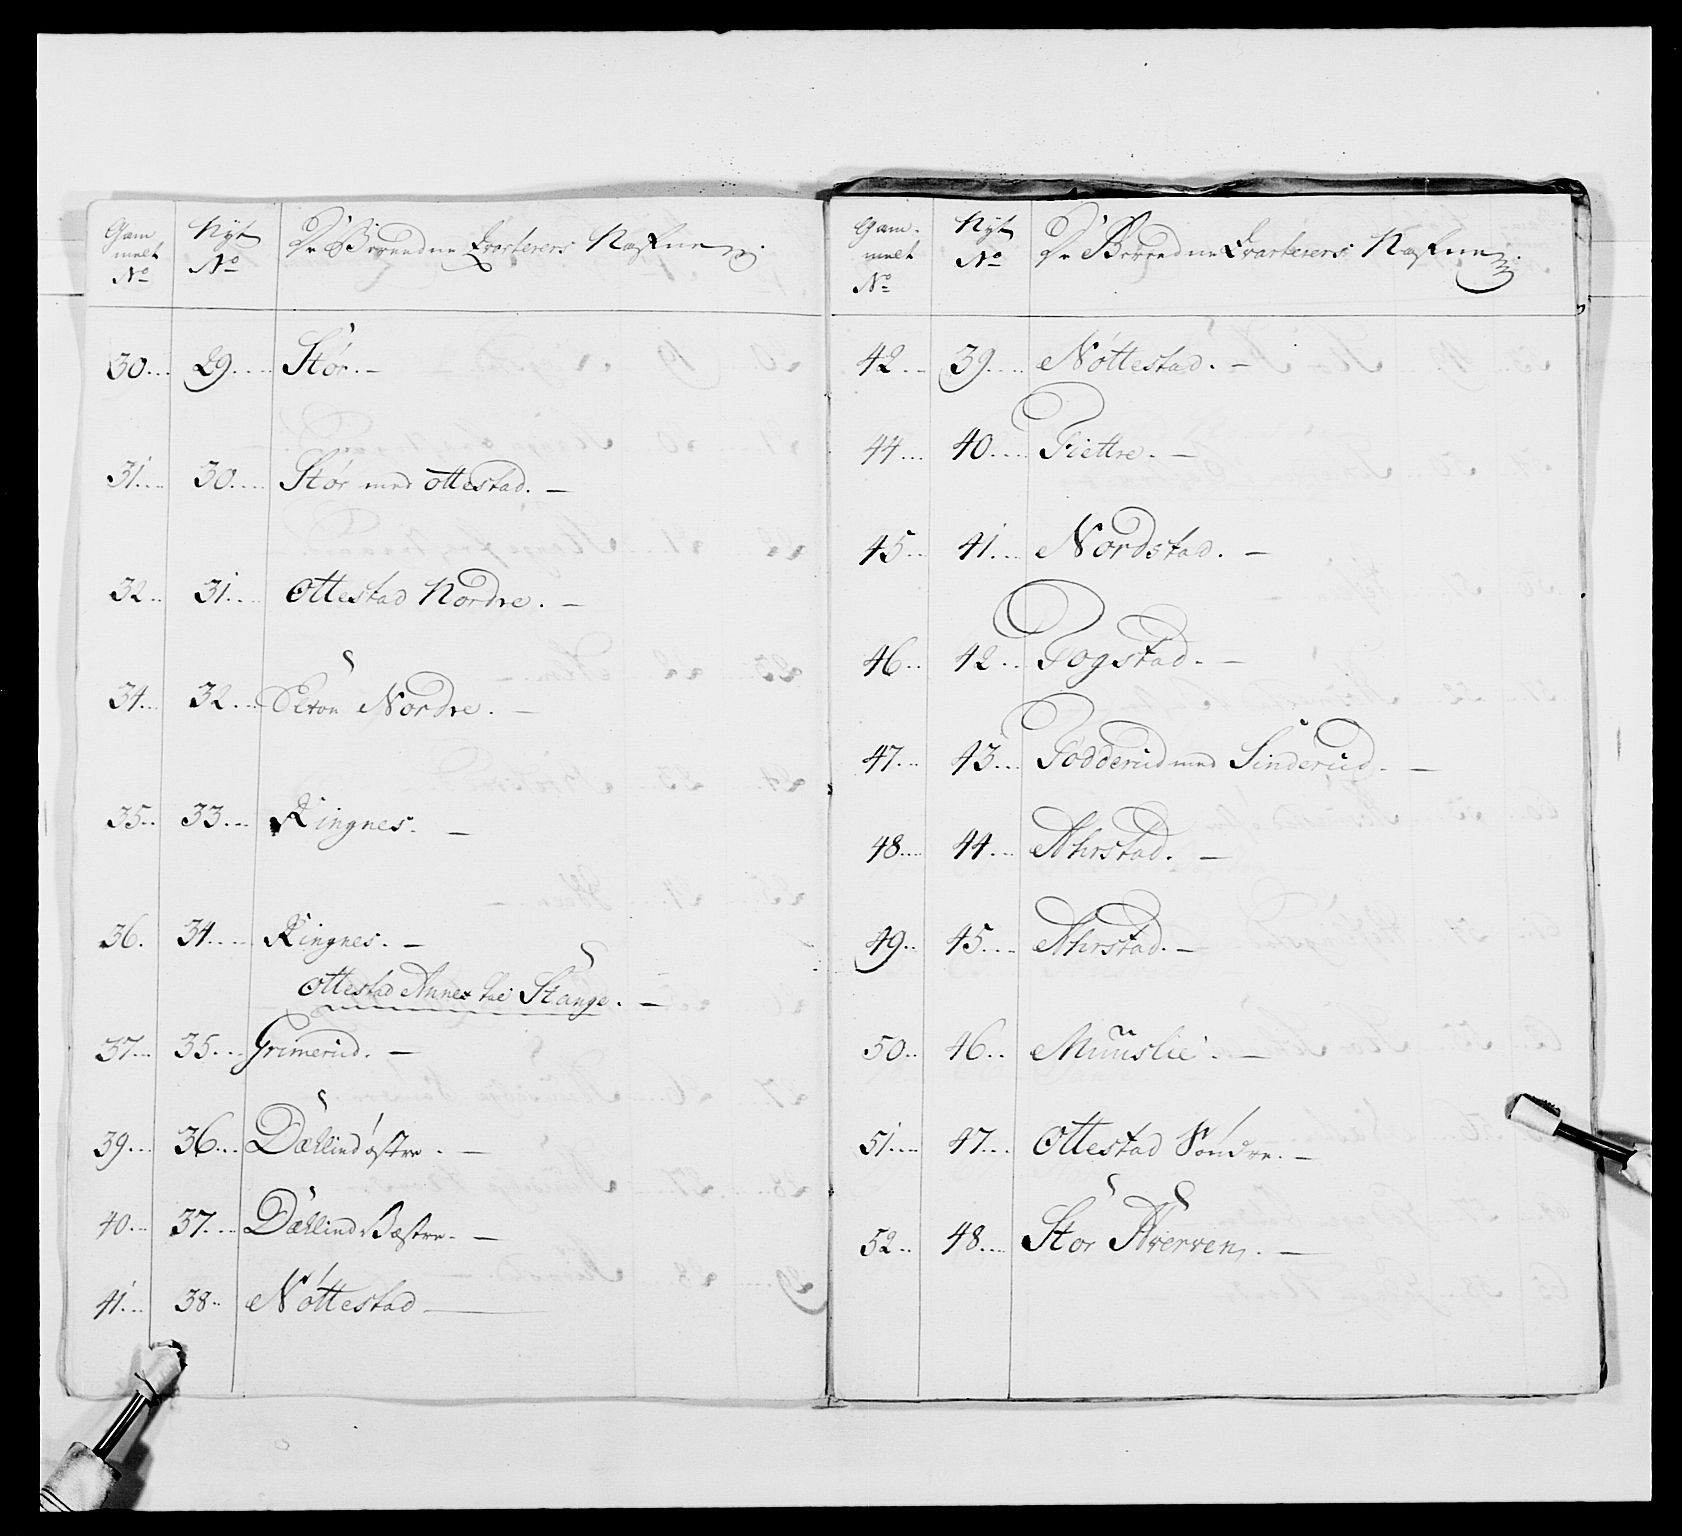 Gam
melt
No
Nyt
No
De Beredne Qvarterers Nafne
30 29 Stór.
31 30 Stór med Ottestad.
32 31 Ottestad Nordre.
34 32 Nordre.
35 33 Ringnes.
36. 34 Ringnes.
Ottestad Annex til Stange.
37 35 Grimerud.
39 36 Dæhlind østre.
40 37 Dæhlind Væstre.
41 38 Nóttestad
Gam.
melt
No
Nyt
No
De Beredne Qvarterers Nafne
42 39 Nóttestad.
44 40 Fiettre.
45 41 Nordstad.
46 42 Fogstad.
47 43 Fodderud med Sinderud.
48 44 Ahrstad.
49 45 Ahrstad.
50 46 Muuslie.
51 47 Ottestad Sóndre.
52 48 Stor